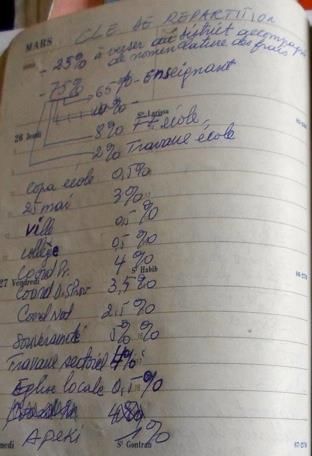 MARS CLE DE REPARTITION
- 25% à verser au district accompagné
de nomenclature des frais
- 75%
65% - Enseignant
10% -
26 Jeudi Sᵉ Larissa
8% F. école
2% Travaux école
Copa école 0,5%
25 mai 3%
Ville 0,5%
Collège 0,5%
Coord Pr. 4%
27 Vendredi Sᵗ Habib 86-279
Coord D.S/Prov 3,5%
Coord Nat 2,5%
Souveraineté %
Travaux sectoriel 4%
Eglise locale 0,5%
Apeki 1%
Sᵗ Gontran 87-278